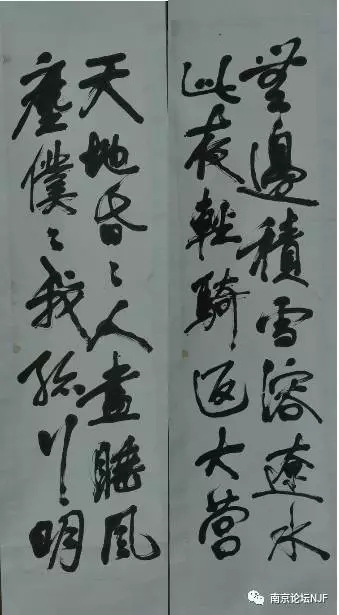 無邊積雪溶遼水
此夜輕騎返大營
天地昏々人盡睡風
塵僕々我孤明
南京论坛NJF